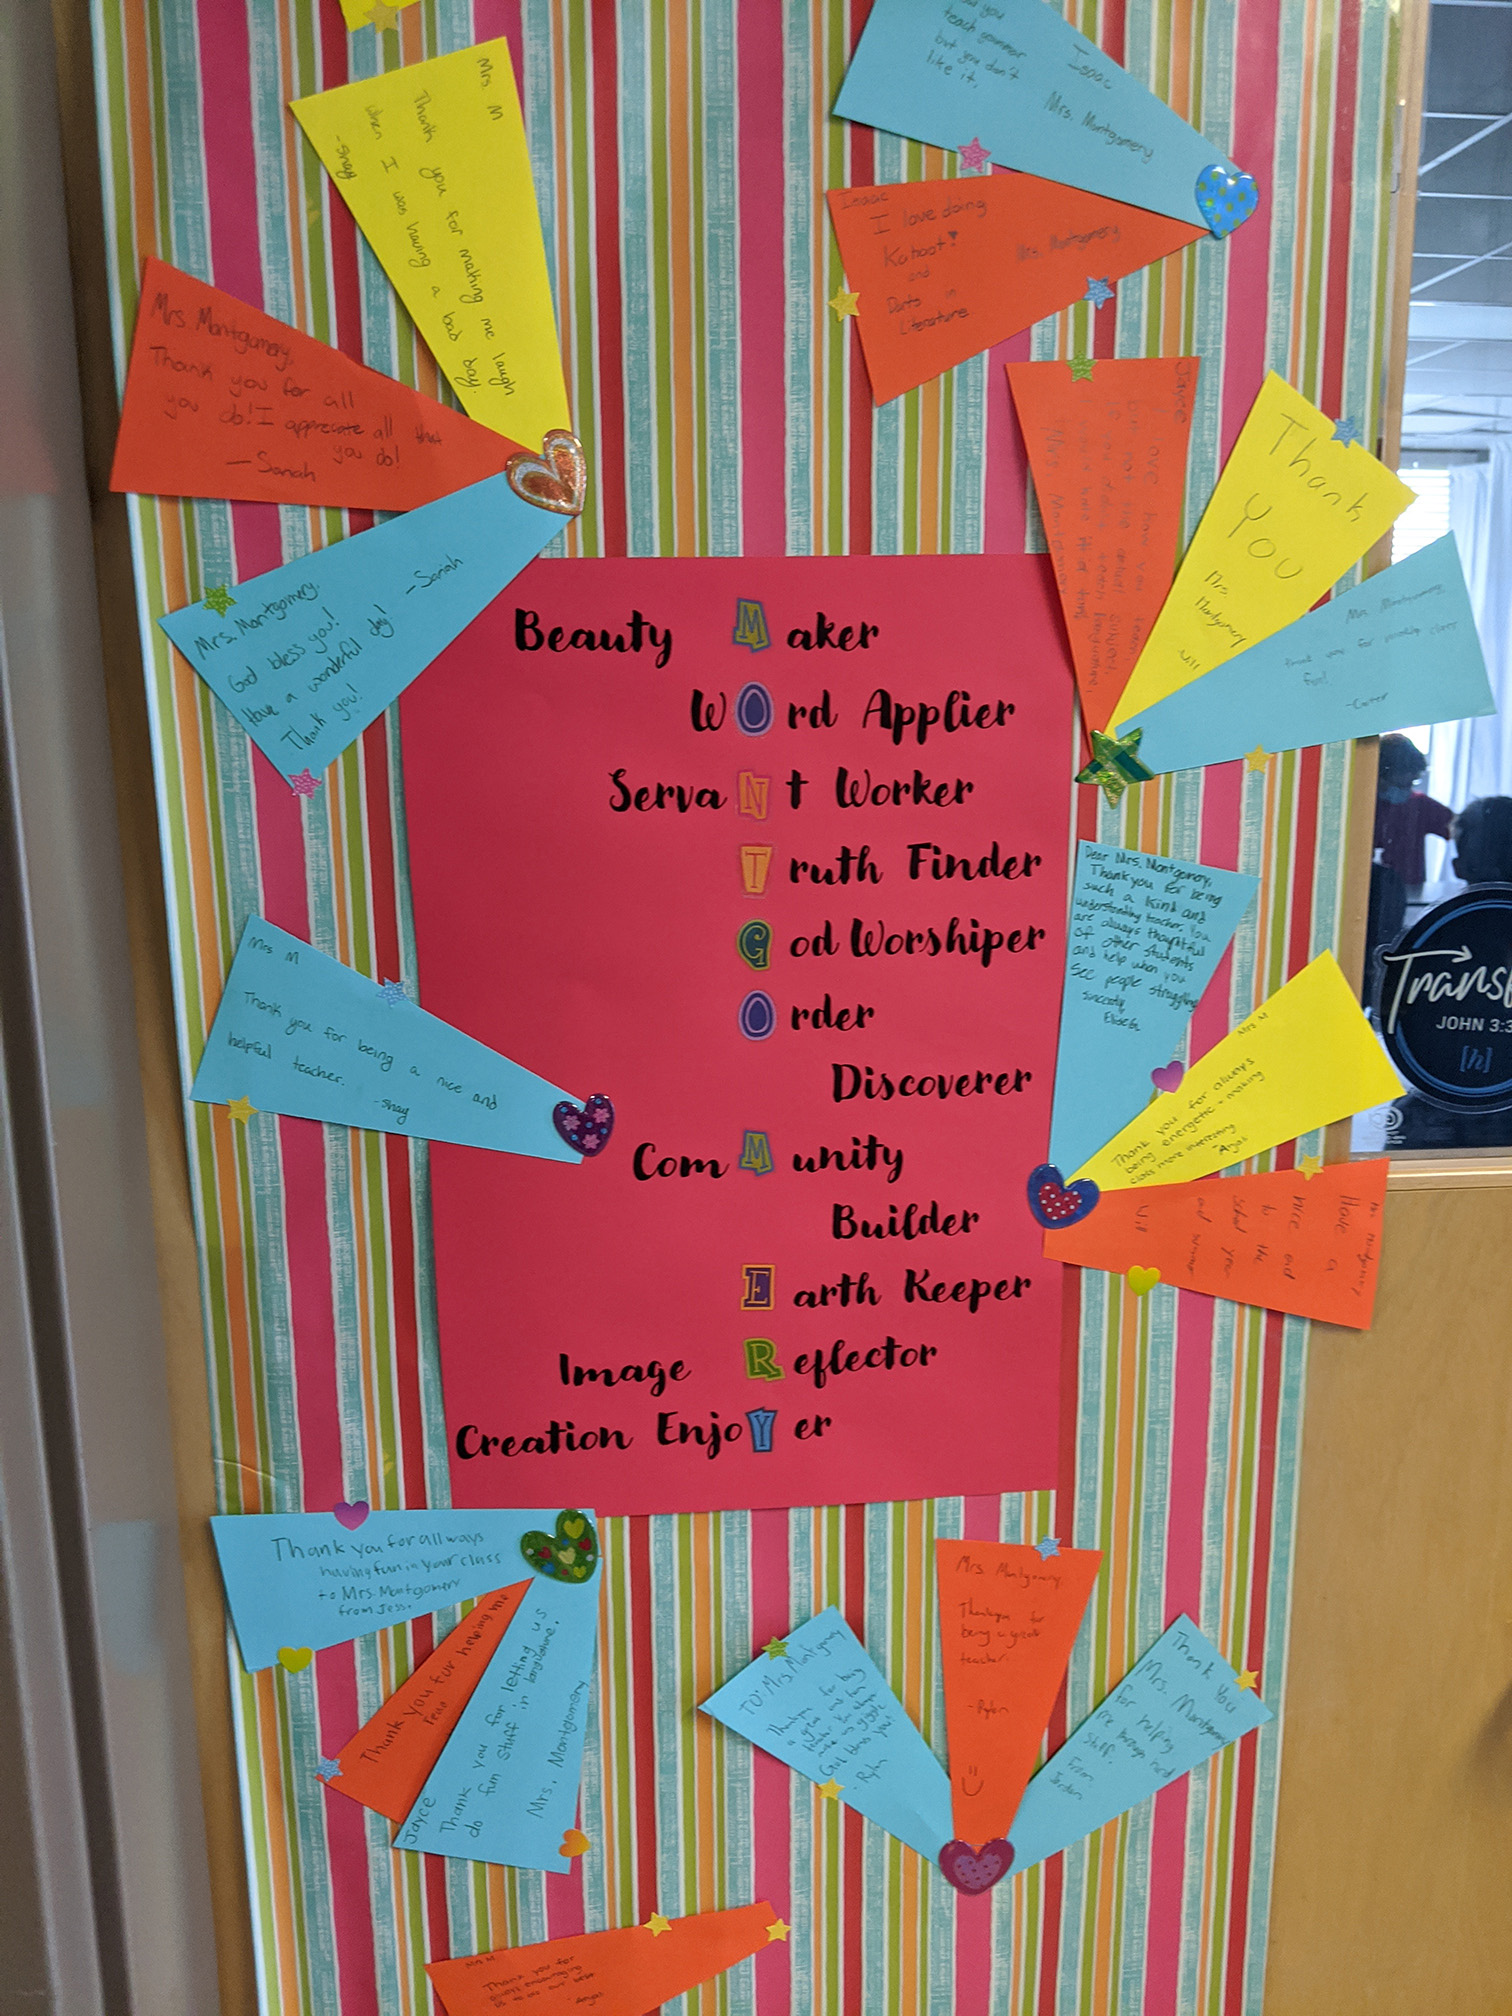 you
teach grammar
but you don't
like it,
Isaac
Mrs. Montgomery
Mrs. M
Thank you for making me laugh
when I was having a bad day.
-Shay
Isaac
I love doing
Kahoot!
and
Darts in
Literature
Mrs. Montgomery
Mrs. Montgomery,
Thank you for all
you do! I appreciate all that
you do!
-Sarah
Jayce
I love how you teach
Thank
You
Mrs.
Montgomery
Will
Mrs. Montgomery,
thank you for making class
fun!
-Carter
Mrs. Montgomery,
God bless you!
Have a wonderful day!
Thank you!
-Sarah
Beauty Maker
WOrd Applier
ServaNt Worker
Truth Finder
God Worshiper
Order
Discoverer
ComMunity
Builder
Earth Keeper
Image Reflector
Creation EnjoYer
Dear Mrs. Montgomery,
Thank you for being
such a kind and
understanding teacher. You
are always thoughtful
of other students
and help when you
see people struggling
sincerly
Mrs M
Thank you for being a nice and
helpful teacher.
-Shay
Mrs M
Thank you for always
being energetic + making
class more interesting
Mrs Montgomery
Have a
nice end
to the
school year
and summer
Will
Trans
JOHN 3:3
[h]
Thank you for allways
having fun in your class
to Mrs. Montgomery
from Jess.
Thank you for helping me
Jayce
Thank you for letting us
do fun stuff in langlature.
Mrs. Montgomery
TO: Mrs. Montgomery
Thankyou for being
a great and fun
teacher. You always
make us giggle
God bless you!
- Rylan
Mrs. Montgomery
Thankyou for
being a great
teacher.
-Rylan
Thank you
Mrs. Montgomery
for helping
me through hard
stuff.
From
Jordan
Mrs M
Thank you for
always encouraging
us to do our best